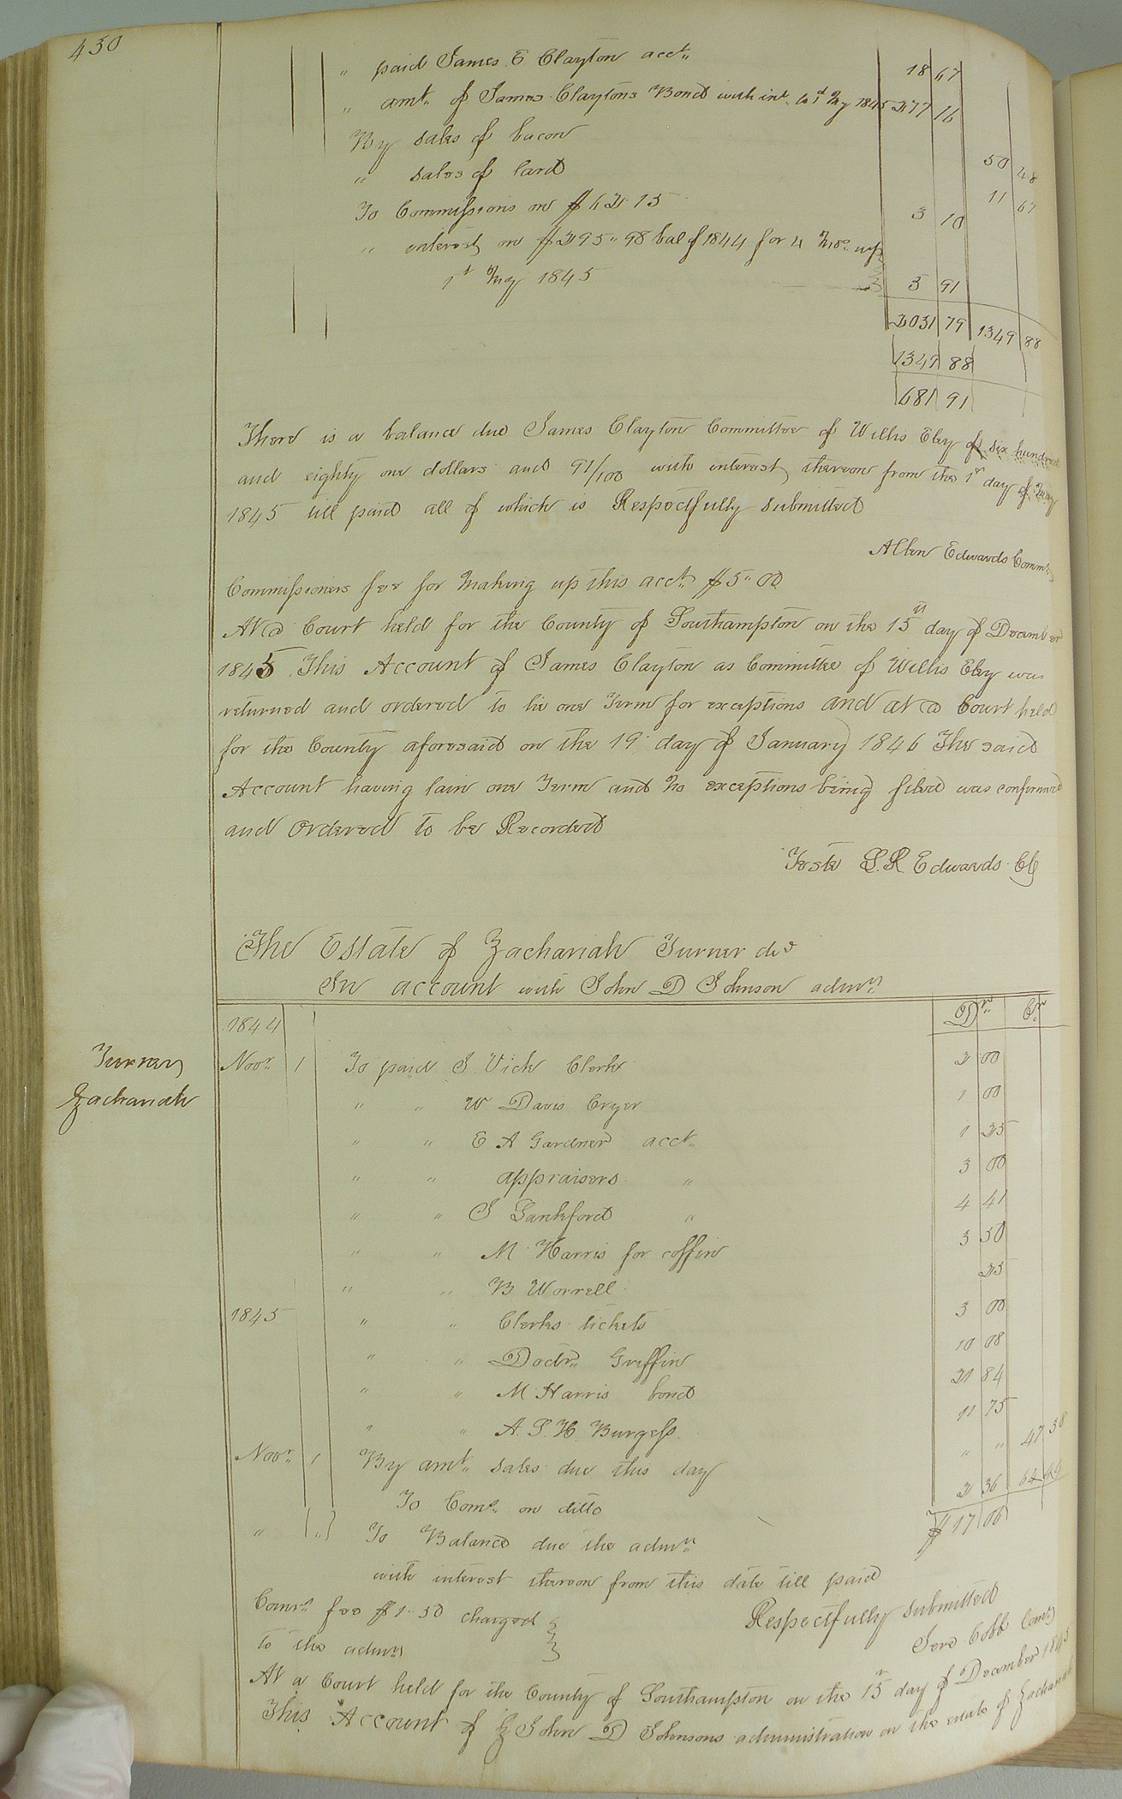 430
" paid James E Clayton acct.
18 67
" amt. of James Claytons Bond with int. to 1st May 1845 277 16
By sales of bacon 50 48
" sales of lard 11 67
To Commissions on $62 15 3 10
" interest on $295.98 bal of 1844 for 4 mos. up
1st May 1845 5 91
2031 79 1349 88
1349 88
681 91
There is a balance due James Clayton Committee of Willis Eley of six hundred
and eighty one dollars and 91/100 with interest thereon from the 1st day of May
1845 till paid all of which is Respectfully submitted
Allen Edwards Commr.
Commissioners fee for making up this acct. $5.00
At a Court held for the County of Southampton on the 15th day of December
1845 This Account of James Clayton as Committee of Willis Eley was
returned and ordered to lie one Term for exceptions and at a Court held
for the County aforesaid on the 19 day of January 1846 The said
Account having lain one Term and no exceptions being filed was confirmed
and ordered to be Recorded
Teste L.R. Edwards Clk
The Estate of Zachariah Turner decd
In account with John D Johnson admr.
Dr. Cr.
1844
Turner
Zachariah
Novr. 1 To paid J Vick Clerk 2 00
" " W Davis Cryer 1 00
" " E A Gardner acct. 1 25
" " appraisers " 3 00
" " J Lankford " 4 41
" " M Harris for coffin 3 50
" " B Worrell 25
1845 " " Clerks tickets 3 00
" " Doctr. Griffin 10 08
" " M Harris bond 21 84
" " A. S. H. Burgess 11 75
Novr. 1 By amt. sales due this day " " 47 38
To Coms. on ditto 2 36
" " To Balance due the admr. $17 06
with interest thereon from this date till paid
Comrs. fee $1.50 charged
to the admr.
Respectfully submitted
Jere Cobb Comr.
At a Court held for the County of Southampton on the 15 day of December 1845
This Account of John D Johnsons administration on the estate of Zachariah